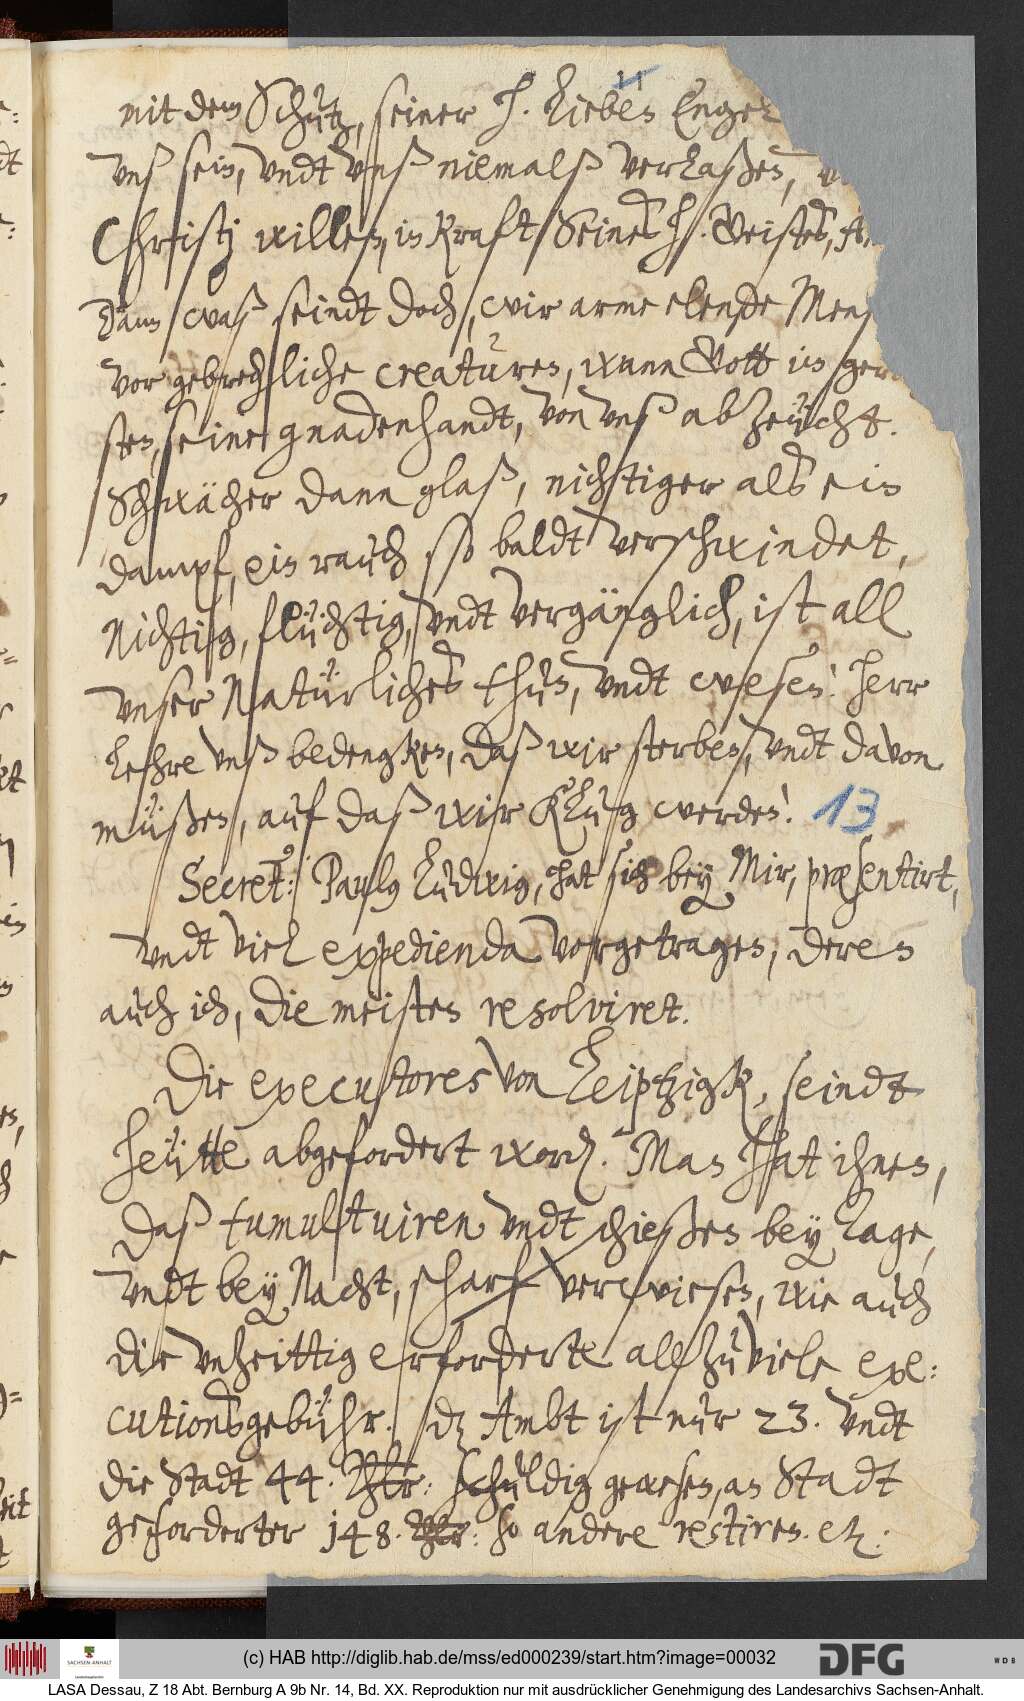 11
mit dem Schutz, seiner h. lieben Engel
vnß sein, vndt vnß niemalß verlaßen,
Christj willen, in kraft Seines h. Geistes, A
Dann waß seindt doch, wir arme elende Men
vor gebrechliche creaturen, wann Gott im ger
sten, seine gnadenhandt, von vnß abzeücht.
Schwächer dann glaß, nichtiger als ein
dampf, ein rauch so baldt verschwindet,
Nichtig, flüchtig, vndt vergänglich, ist all
vnser Natürliches thun, vndt wesen! herr
lehre vnß bedengken, daß wir sterben, vndt davon
müßen, auf daß wir klug werden! 13
Secret: Paulg Ludwig, hat sich bey Mir, præsentirt,
vndt viel expedienda vorgetragen, deren
auch ich, die meisten resolviret.
Die executores von Leiptzigk, seindt
heütte abgefordert word. Man hat ihnen,
daß tumultuiren vndt schießen bey Tage,
vndt bey Nacht, scharf verwiesen, wie auch
die vnzeittig erforderte allzuviele exe:
cutionsgebühr. dz Ambt ist nur 23. vndt
die Stadt 44. Thlr: schuldig gewesen, an Stadt
geforderter 148. Thlr: so andere restiren. etc.
(c) HAB http://diglib.hab.de/mss/ed000239/start.htm?image=00032
SACHSEN-ANHALT
DFG
WDB
LASA Dessau, Z 18 Abt. Bernburg A 9b Nr. 14, Bd. XX. Reproduktion nur mit ausdrücklicher Genehmigung des Landesarchivs Sachsen-Anhalt.